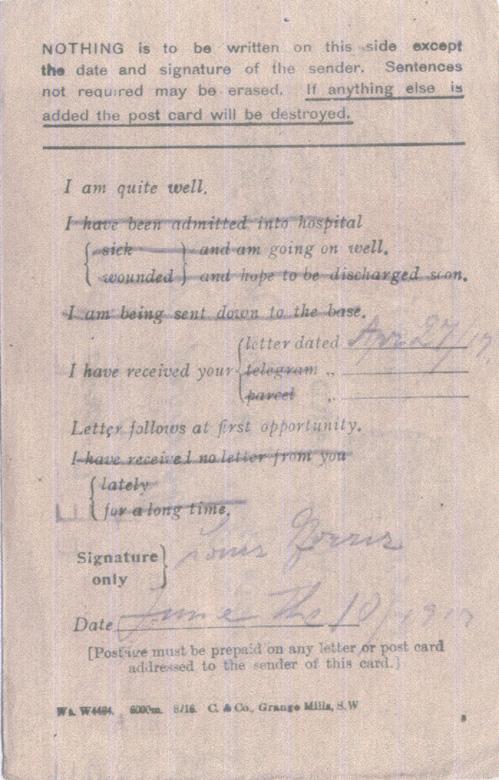 NOTHING is to be written on this side except
the date and signature of the sender. Sentences
not required may be erased. If anything else is
added the post card will be destroyed.
I am quite well.
I have been admitted into hospital
{ sick } and am going on well.
{ wounded } and hope to be discharged soon.
I am being sent down to the base.
{ letter dated Apr 27/17
I have received your { telegram ,,
{ parcel ,,
Letter follows at first opportunity.
I have received no letter from you
{ lately
{ for a long time.
Signature
only } Louis Norris
Date June The 10/1917
[Postage must be prepaid on any letter or post card
addressed to the sender of this card.]
Wt. W4494. 6000m. 8/16. C. & Co., Grange Mills, S.W